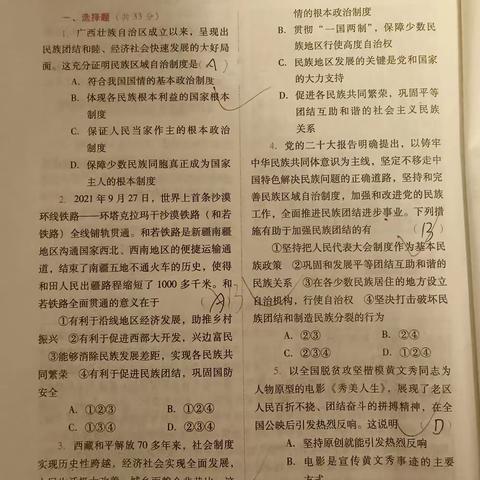 一、选择题（共 33 分）
1. 广西壮族自治区成立以来，呈现出
民族团结和睦、经济社会快速发展的大好局
面。这充分证明民族区域自治制度是（A）
A. 符合我国国情的基本政治制度
B. 体现各民族根本利益的国家根本
制度
C. 保证人民当家作主的根本政治
制度
D. 保障少数民族同胞真正成为国家
主人的根本制度
2. 2021 年 9 月 27 日，世界上首条沙漠
环线铁路——环塔克拉玛干沙漠铁路（和若
铁路）全线铺轨贯通。和若铁路是新疆南疆
地区沟通国家西北、西南地区的便捷运输通
道，结束了南疆五地不通火车的历史，使得
和田人民出疆路程缩短了 1000 多千米。和
若铁路全面贯通的意义在于（
①有利于沿线地区经济发展，助推乡村
振兴 ②有利于促进西部大开发，兴边富民
③能够消除民族发展差距，实现各民族共
同繁荣 ④有利于促进民族团结，巩固国防
安全
A. ①②③ B. ①②④
C. ①③④ D. ②③④
3. 西藏和平解放 70 多年来，社会制度
实现历史性跨越，经济社会实现全面发展，
情的根本政治制度
B. 贯彻“一国两制”，保障少数民
族地区行使高度自治权
C. 民族地区发展的关键是党和国家
的大力支持
D. 促进各民族共同繁荣，巩固平等
团结互助和谐的社会主义民族
关系
4. 党的二十大报告明确提出，以铸牢
中华民族共同体意识为主线，坚定不移走中
国特色解决民族问题的正确道路，坚持和完
善民族区域自治制度，加强和改进党的民族
工作，全面推进民族团结进步事业。下列措
施有助于加强民族团结的有（B）
①坚持把人民代表大会制度作为基本民
族政策 ②巩固和发展平等团结互助和谐的
民族关系 ③在各少数民族居住的地方设立
自治机构，行使自治权 ④坚决打击破坏民
族团结和制造民族分裂的行为
A. ②③ B. ②④
C. ③④ D. ①②④
5. 以全国脱贫攻坚楷模黄文秀同志为
人物原型的电影《秀美人生》，展现了老区
人民百折不挠、团结奋斗的拼搏精神，在全
国公映后引发热烈反响。这说明（D）
A. 坚持原创就能引发热烈反响
B. 电影是宣传黄文秀事迹的主要
方式